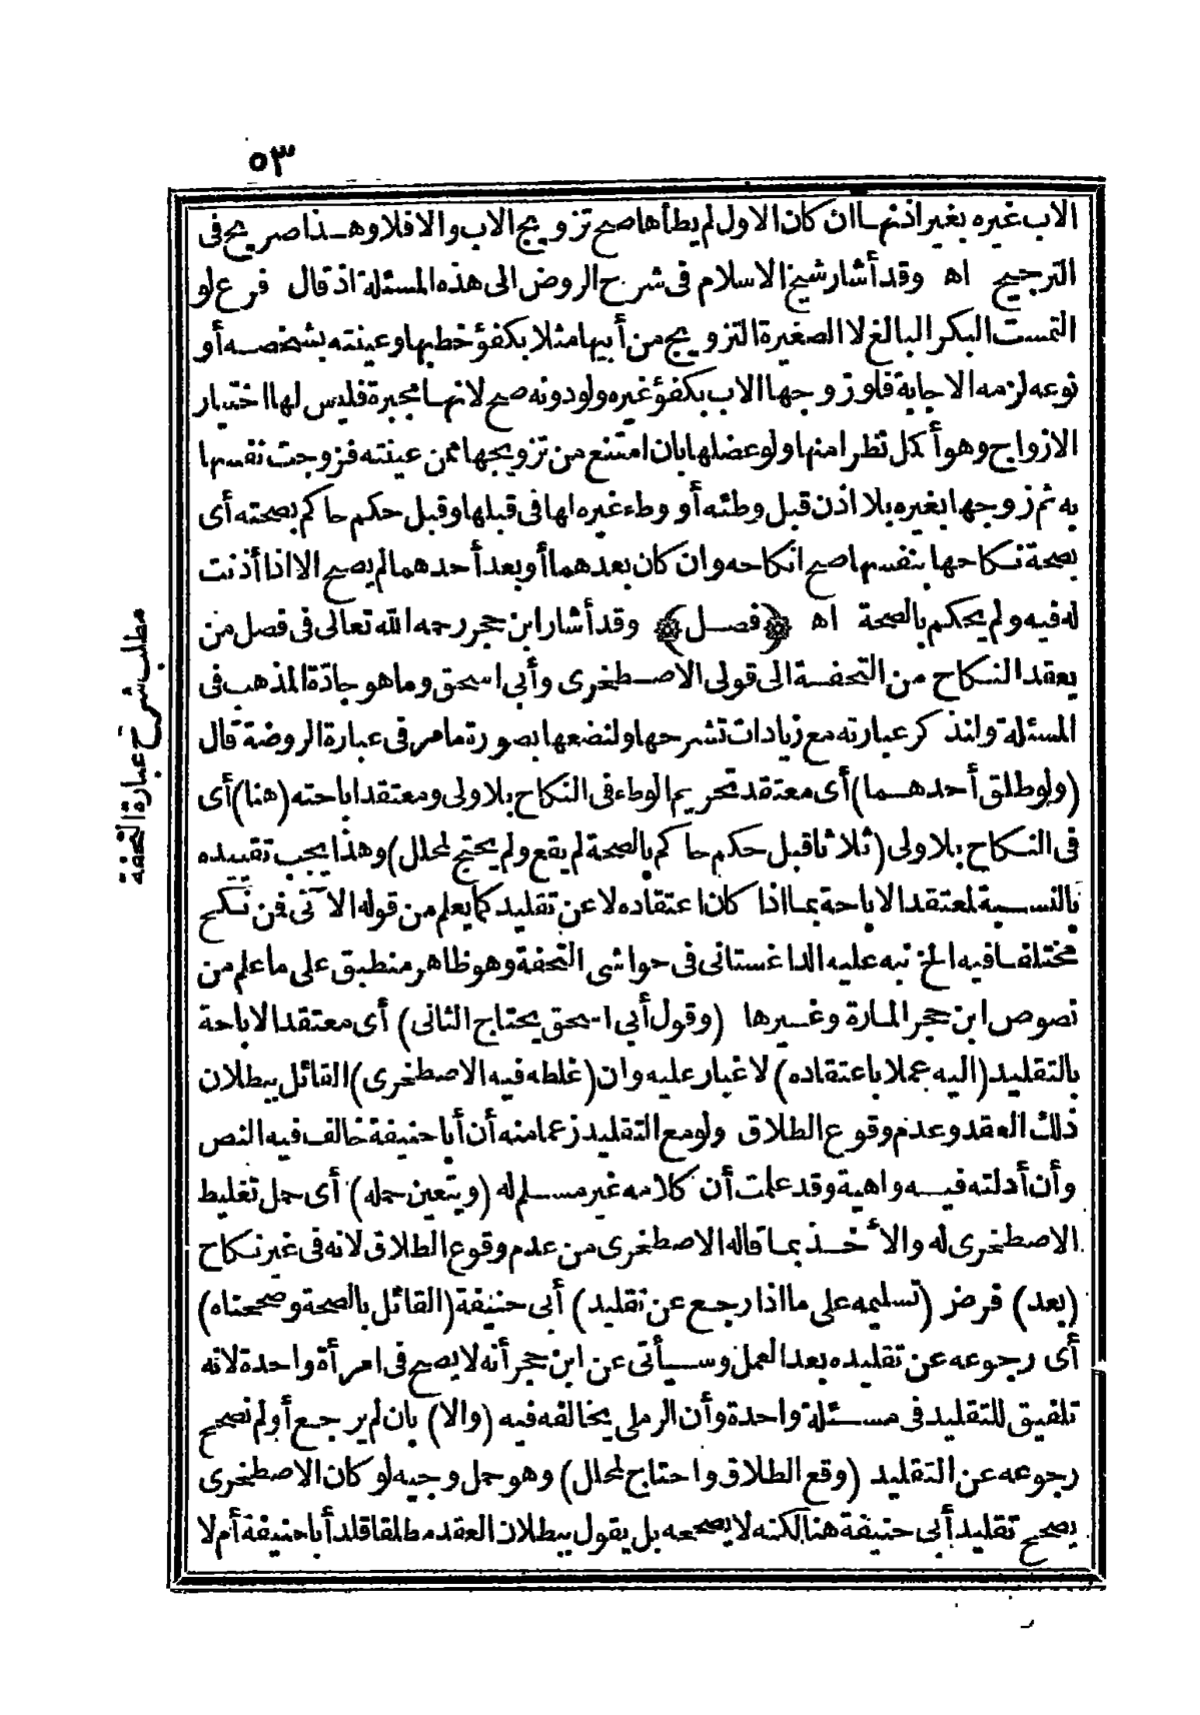 ٥٣
الاب غيره بغير اذنها ان كان الاول لم يطأها صح تزويج الاب والا فلا وهذا صريح فى
الترجيح اه وقد أشار شيخ الاسلام فى شرح الروض الى هذه المسئلة اذ قال فرع لو
التمست البكر البالغ لا الصغيرة التزويج من أبيها مثلا بكفؤ خطبها وعينته بشخصه أو
نوعه لزمه الاجابة فلو زوجها الاب بكفؤ غيره ولو دونه صح لانها مجبرة فليس لها اختيار
الازواج وهو أكمل نظرا منها ولو عضلها بان امتنع من تزويجها ممن عينته فزوجت نفسها
به ثم زوجها بغيره بلا اذن قبل وطئه أو وطء غيره لها فى قبلها وقبل حكم حاكم بصحته أى
بصحة نكاحها بنفسها صح انكاحه وان كان بعدهما أو بعد أحدهما لم يصح الا اذا أذنت
له فيه ولم يحكم بالصحة اه ﴿فصل﴾ وقد أشار ابن حجر رحمه الله تعالى فى فصل من
يعقد النكاح من التحفة الى قولى الاصطخرى وأبى اسحق وما هو جادّة المذهب فى
المسئلة ولنذكر عبارته مع زيادات تشرحها ولنضعها بصورة ما مر فى عبارة الروضة قال
(ولو طلق أحدهما) أى معتقد تحريم الوطء فى النكاح بلا ولى ومعتقد اباحته (هنا) أى
فى النكاح بلا ولى (ثلاثا قبل حكم حاكم بالصحة لم يقع ولم يحتج لمحلل) وهذا يجب تقييده
بالنسبة لمعتقد الاباحة بما اذا كان اعتقاده لا عن تقليد كما يعلم من قوله الآتى فمن نكح
مختلفا فيه الخ نبه عليه الداغستانى فى حواشى التحفة وهو ظاهر منطبق على ما علم من
نصوص ابن حجر المارة وغيرها (وقول أبى اسحق يحتاج الثانى) أى معتقد الاباحة
بالتقليد (اليه عملا باعتقاده) لا غبار عليه وان (غلطه فيه الاصطخرى) القائل ببطلان
ذلك العقد وعدم وقوع الطلاق ولو مع التقليد زعما منه أن أبا حنيفة خالف فيه النص
وأن أدلته فيه واهية وقد علمت أن كلامه غير مسلم له (ويتعين حمله) أى حمل تغليط
الاصطخرى له والأخذ بما قاله الاصطخرى من عدم وقوع الطلاق لانه فى غير نكاح
(بعد) فرض (تسليمه على ما اذا رجع عن تقليد) أبى حنيفة (القائل بالصحة وصححناه)
أى رجوعه عن تقليده بعد العمل وسيأتى عن ابن حجر أنه لا يصح فى امرأة واحدة لانه
تلفيق للتقليد فى مسئلة واحدة وأن الرملى يخالفه فيه (والا) بان لم يرجع أو لم نصحح
رجوعه عن التقليد (وقع الطلاق واحتاج لمحلل) وهو حمل وجيه لو كان الاصطخرى
يصحح تقليد أبى حنيفة هنا لكنه لا يصححه بل يقول ببطلان العقد مطلقا قلد أبا حنيفة أم لا
مطلب شرح عبارة التحفة